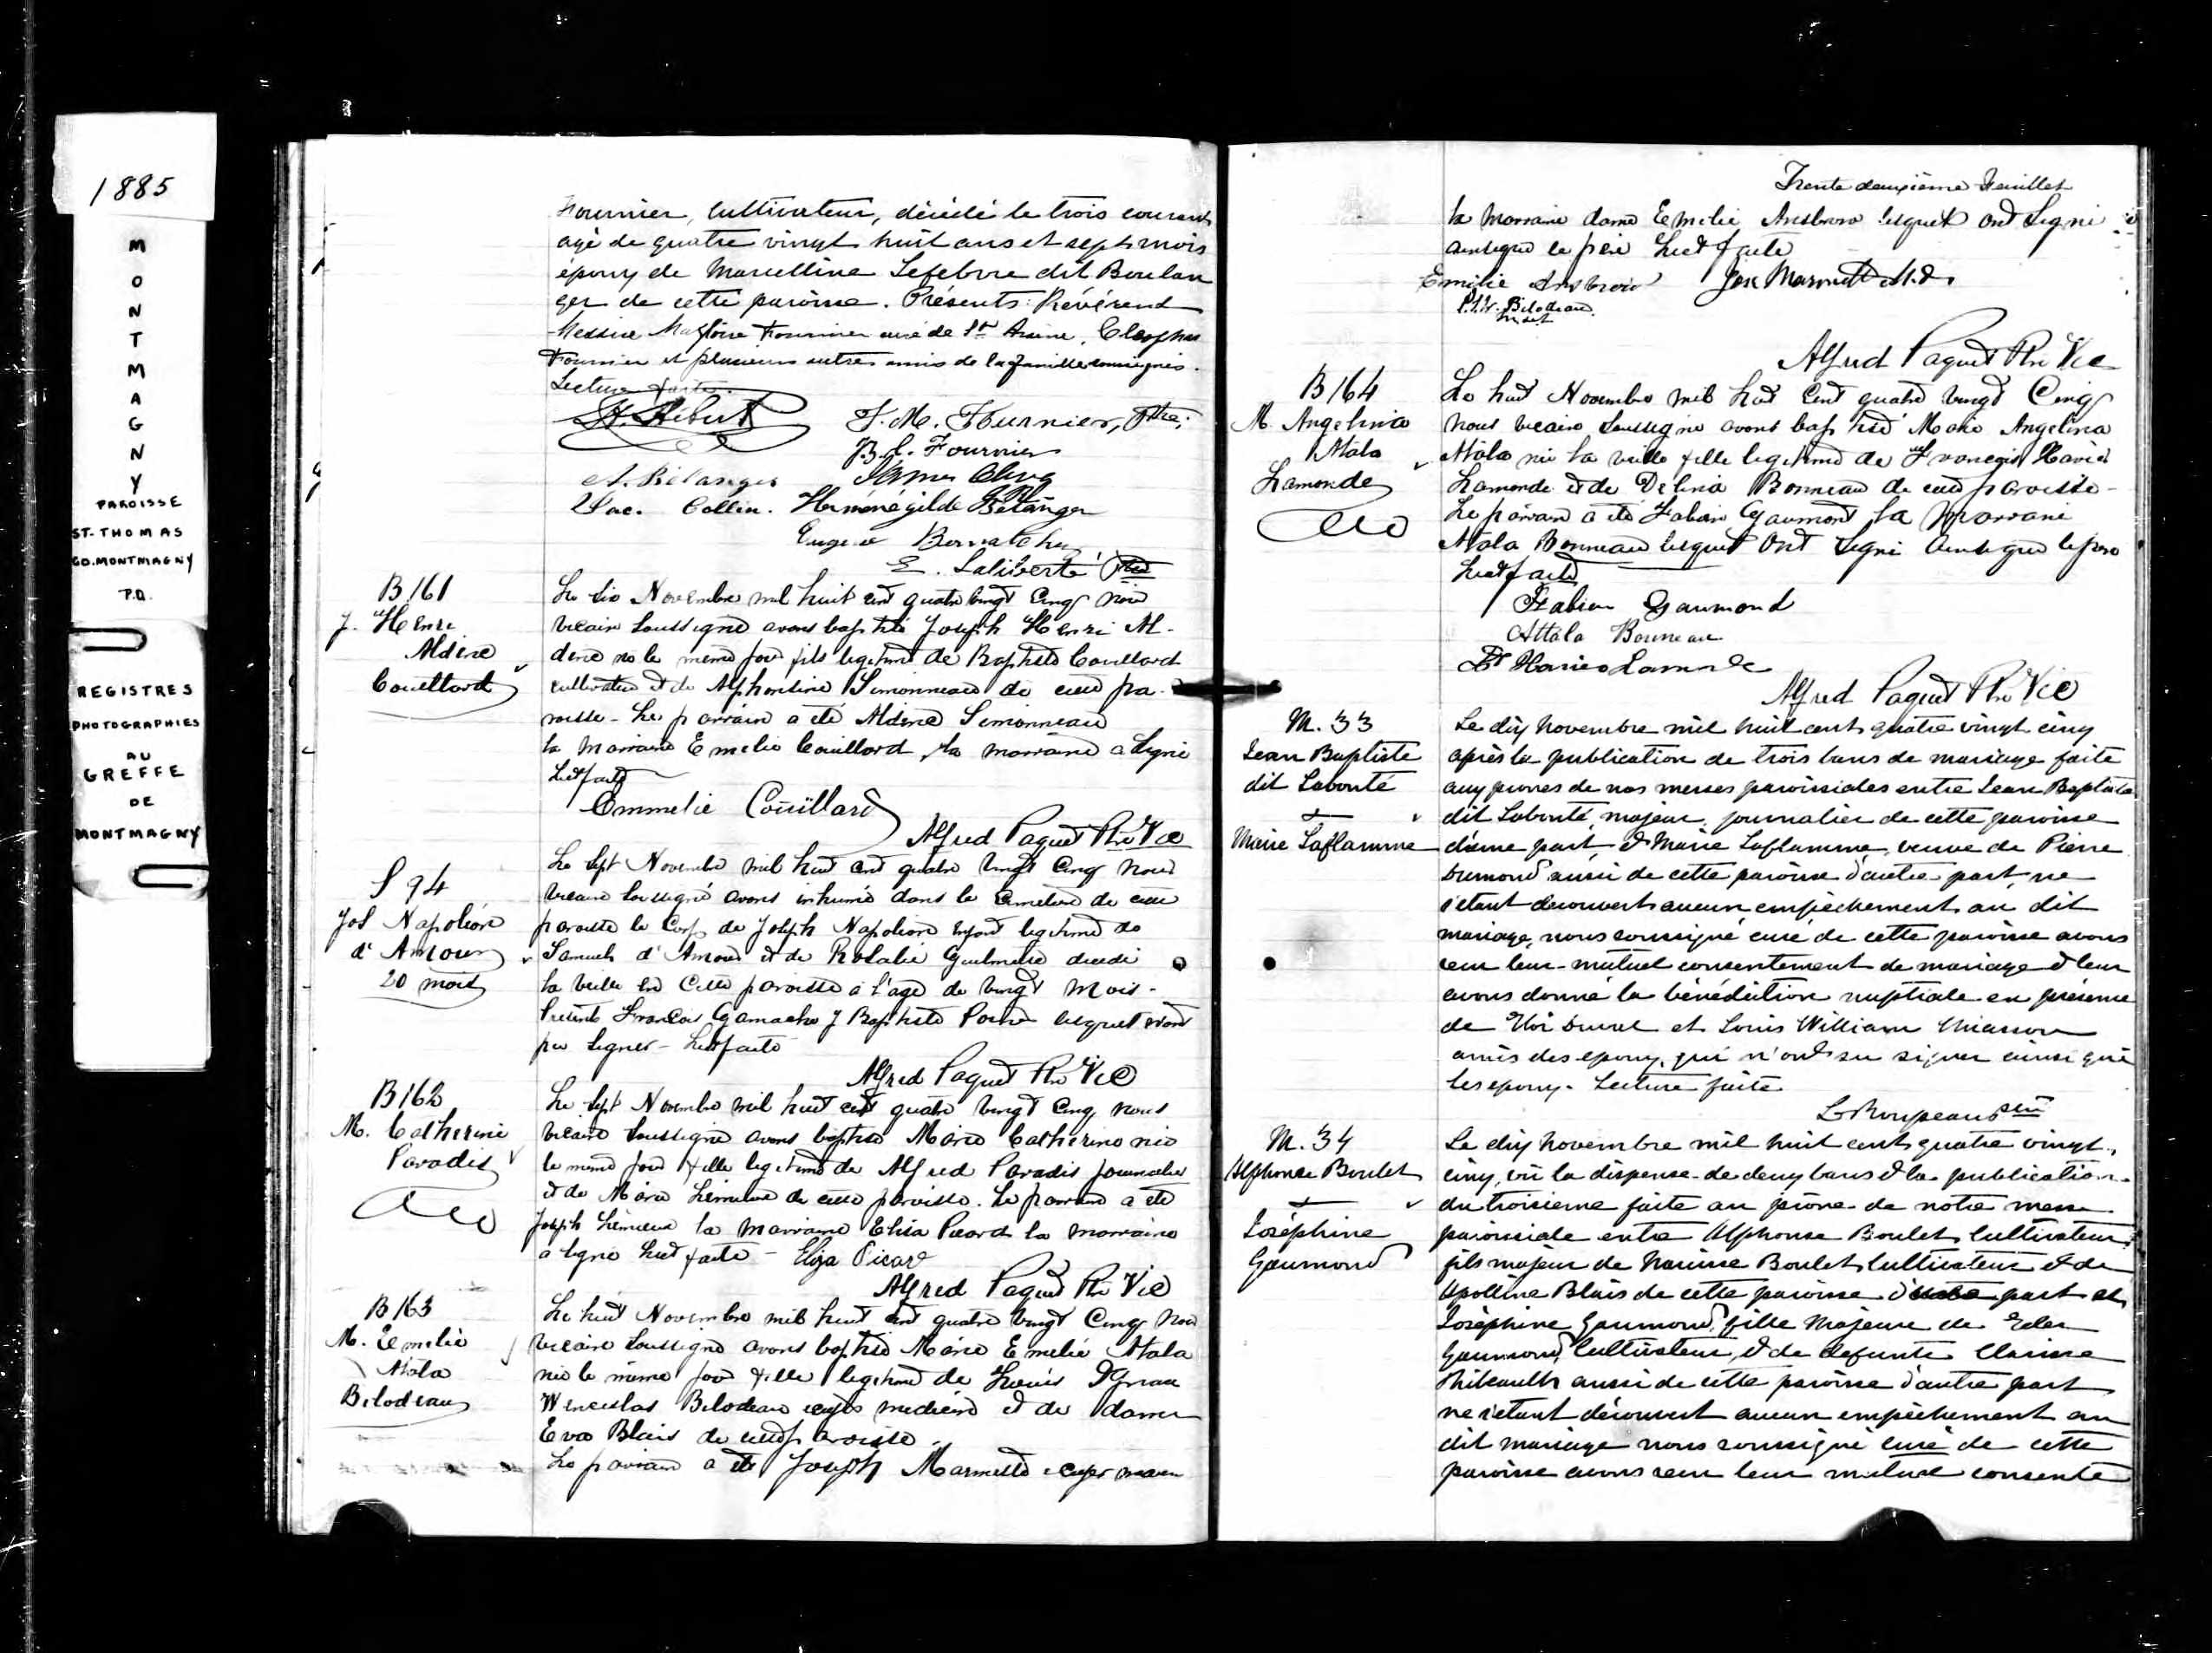 1885
MONTMAGNY
PAROISSE
ST-THOMAS
CO. MONTMAGNY
P.Q.
REGISTRES
PHOTOGRAPHIES
AU
GREFFE
DE
MONTMAGNY
Fournier, cultivateur, décédé le trois courant
agé de quatre vingt huit ans et sept mois
époux de Marcelline Lefebvre dit Boulan
ger de cette paroisse. Présents: Révérend
Messire Magloire Fournier curé de St Arsène, Cleophas
Fournier et plusieurs autres amis de la famille soussignés.
Lecture faite.
J. M. Fournier, Ptre.
B. C. Fournier
A. Bélanger
Jac. Collin. Herménégilde Bélanger
Eugène Bernatchez
E. Laliberté Ptre
B 161
J. Henri
Aldéré
Couillard
Le six Novembre mil huit cent quatre vingt Cinq nous
vicaire soussigné avons baptisé Joseph Henri Al-
déré né le même jour fils légitime de Baptiste Couillard
cultivateur et de Alphonsine Simonneau de cette pa-
roisse - Le parrain a été Aldéré Simonneau
la Marraine Emelie Couillard, la marraine a signé
Lect faite
Emmelie Couillard
Alfred Paquet Ptre Vic
S 94
Jos Napoléon
d'Amour
20 mois
Le sept Novembre mil huit cent quatre vingt Cinq nous
vicaire soussigné avons inhumé dans le Cimetière de cette
paroisse le Corps de Joseph Napoléon enfant légitime de
Samuel d'Amour et de Rosalie décédé
la veille en Cette paroisse à l'age de vingt Mois -
Présents François Gamache J Baptiste lesquels n'ont
pu signer - Lect faite
Alfred Paquet Ptre Vic
B 162
M. Catherine
Paradis
Le sept Novembre mil huit cent quatre vingt Cinq nous
vicaire soussigné avons baptisé Marie Catherine née
le même jour fille légitime de Alfred Paradis journalier
et de Marie Lemieux de cette paroisse. Le parrain a été
Joseph Lemieux la Marraine Eliza Picard la marraine
a signé Lect faite - Eliza Picard
Alfred Paquet Ptre Vic
B 163
M. Emelie
Atala
Bilodeau
Le huit Novembre mil huit cent quatre vingt Cinq nous
vicaire soussigné avons baptisé Marie Emelie Atala
née le même jour fille légitime de Louis Ignace
Wenceslas Bilodeau médecin et de dame
Eva Blais de cette paroisse.
Le parrain a été Joseph Marmette
Trente deuxième Feuillet
la Marraine dame Emelie lesquels ont signé
ainsi que le père Lect faite
Emilie Jos Marmette M.D.
Bilodeau
Alfred Paquet Ptre Vic
B 164
M. Angelina
Atala
Lamonde
Le huit Novembre mil huit Cent quatre vingt Cinq
nous vicaire soussigné avons baptisé Marie Angelina
Atala née la veille fille légitime de François Xavier
Lamonde et de Delina Bonneau de cette paroisse -
Le parrain a été Fabien Gaumont la Marraine
Atala Bonneau lesquels Ont signé ainsi que le père
Lect faite
Fabien Gaumond
Attala Bonneau
Xavier Lamonde
Alfred Paquet Ptre Vic
M. 33
Jean Baptiste
dit Labonté
&
Marie Laflamme
Le dix novembre mil huit cent quatre vingt cinq
après la publication de trois bans de mariage faite
aux prones de nos messes paroissiales entre Jean Baptiste
dit Labonté, majeur, journalier de cette paroisse
d'une part, & Marie Laflamme, veuve de Pierre
Dumond aussi de cette paroisse d'autre part, ne
s'étant découvert aucun empêchement au dit
mariage, nous soussigné curé de cette paroisse avons
reçu leur mutuel consentement de mariage & leur
avons donné la bénédiction nuptiale en présence
de et Louis William Chiasson
amis des epoux, qui n'ont su signer ainsi que
les epoux. Lecture faite
L Roupeau ptre
M. 34
Alphonse Boulet
&
Joséphine
Gaumond
Le dix novembre mil huit cent quatre vingt
cinq, vû la dispense de deux bans & la publication
du troisieme faite au prône de notre messe
paroissiale entre Alphonse Boulet cultivateur,
fils majeur de Narcisse Boulet cultivateur & de
Apolline Blais de cette paroisse d'une part et
Joséphine Gaumond, fille Majeure de
Gaumond, Cultivateur, & de defunte Clarisse
Thibeault aussi de cette paroisse d'autre part
ne s'étant découvert aucun empêchement au
dit mariage nous soussigné curé de cette
paroisse avons reçu leur mutuel consente